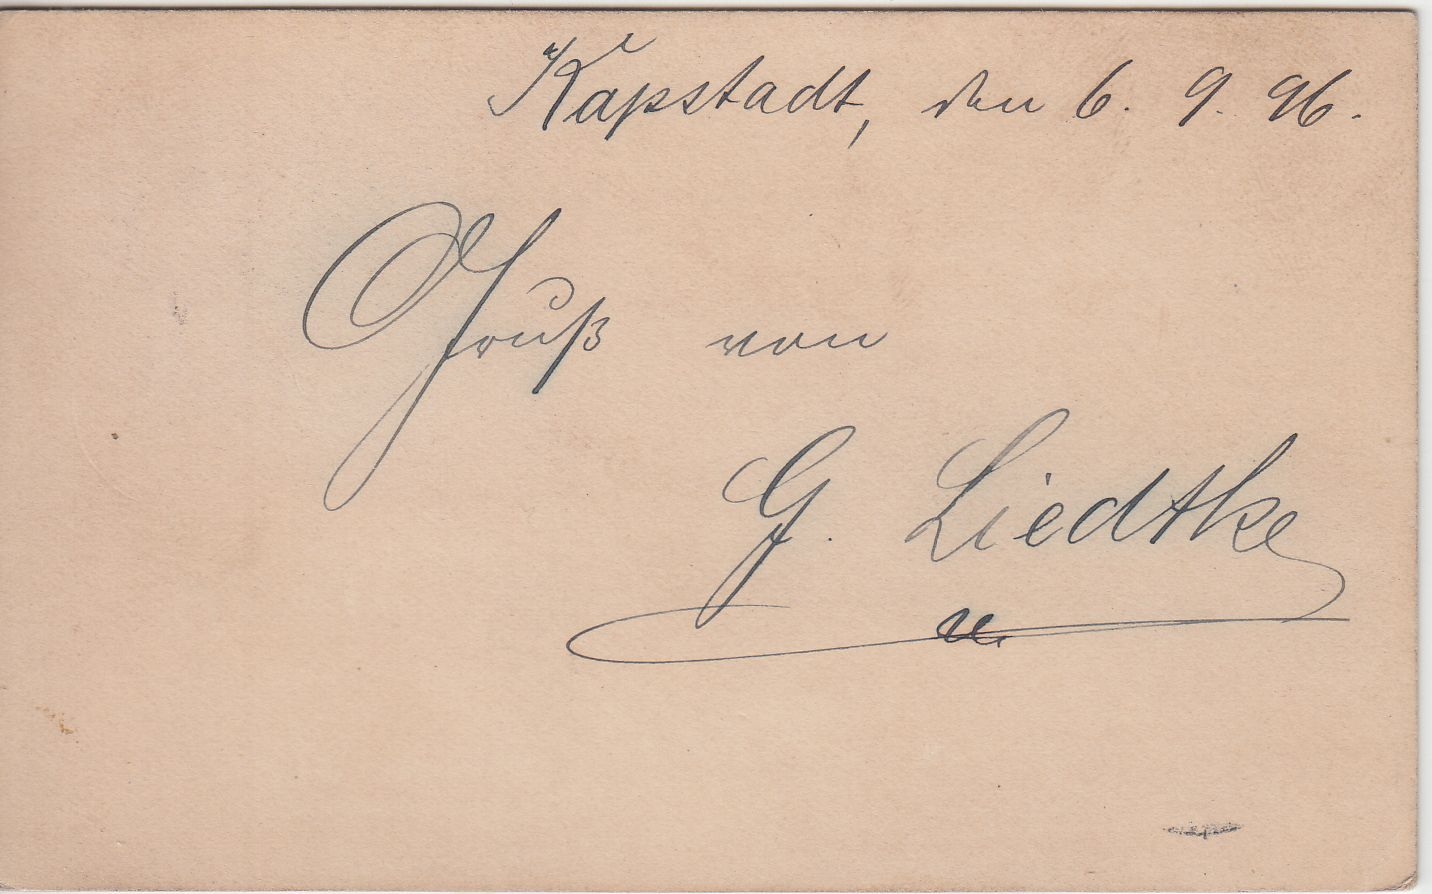 Kapstadt, den 6. 9. 96.
Gruß von
G. Liedtke